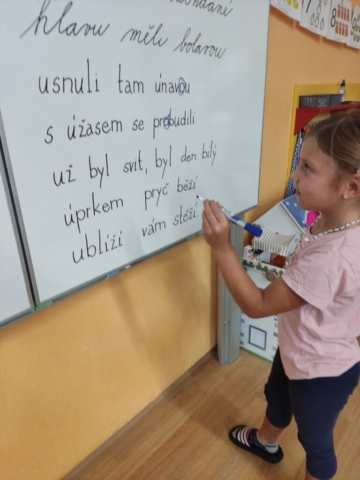 hlavu měli bolavou
usnuli tam únavou
s úžasem se probudili
už byl svit, byl den bílý
úprkem pryč běží
ublíží vám stěží